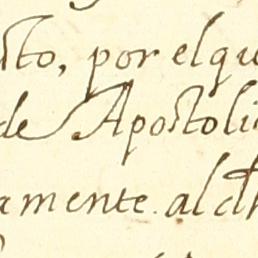 sto, por el qu
de Apostoli
amente. al dh